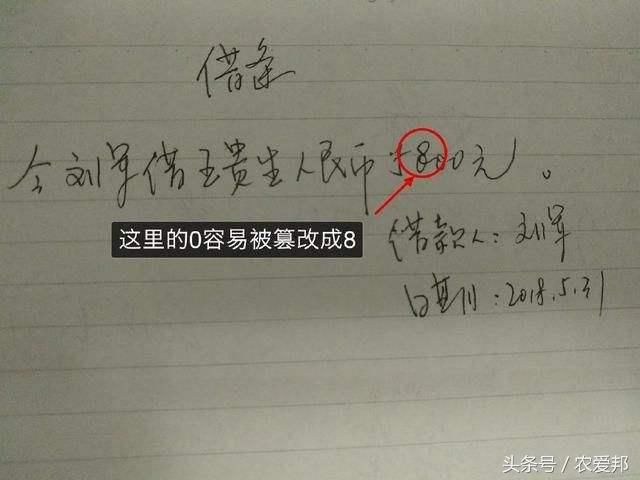 借条
今刘军借王贵生人民币5800元。
这里的0容易被篡改成8
借款人：刘军
日期：2018.5.31
头条号／农爱邦